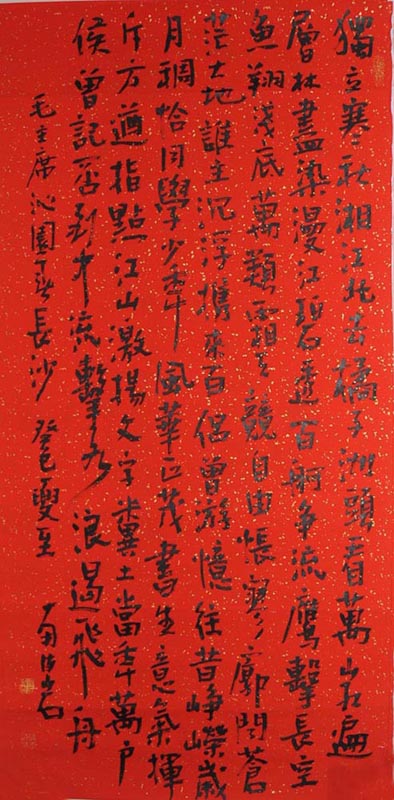 獨立寒秋湘江北去橘子洲頭看萬山红遍
層林盡染漫江碧透百舸争流鹰擊長空
魚翔淺底萬類霜天競自由悵寥廓問蒼
茫大地誰主沉浮攜來百侣曾游憶往昔崢嶸歲
月稠恰同學少年風華正茂書生意氣揮
斥方遒指點江山激揚文字糞土當年萬户
侯曾記否到中流擊水浪遏飛舟
毛主席沁園春長沙 癸巳夏至